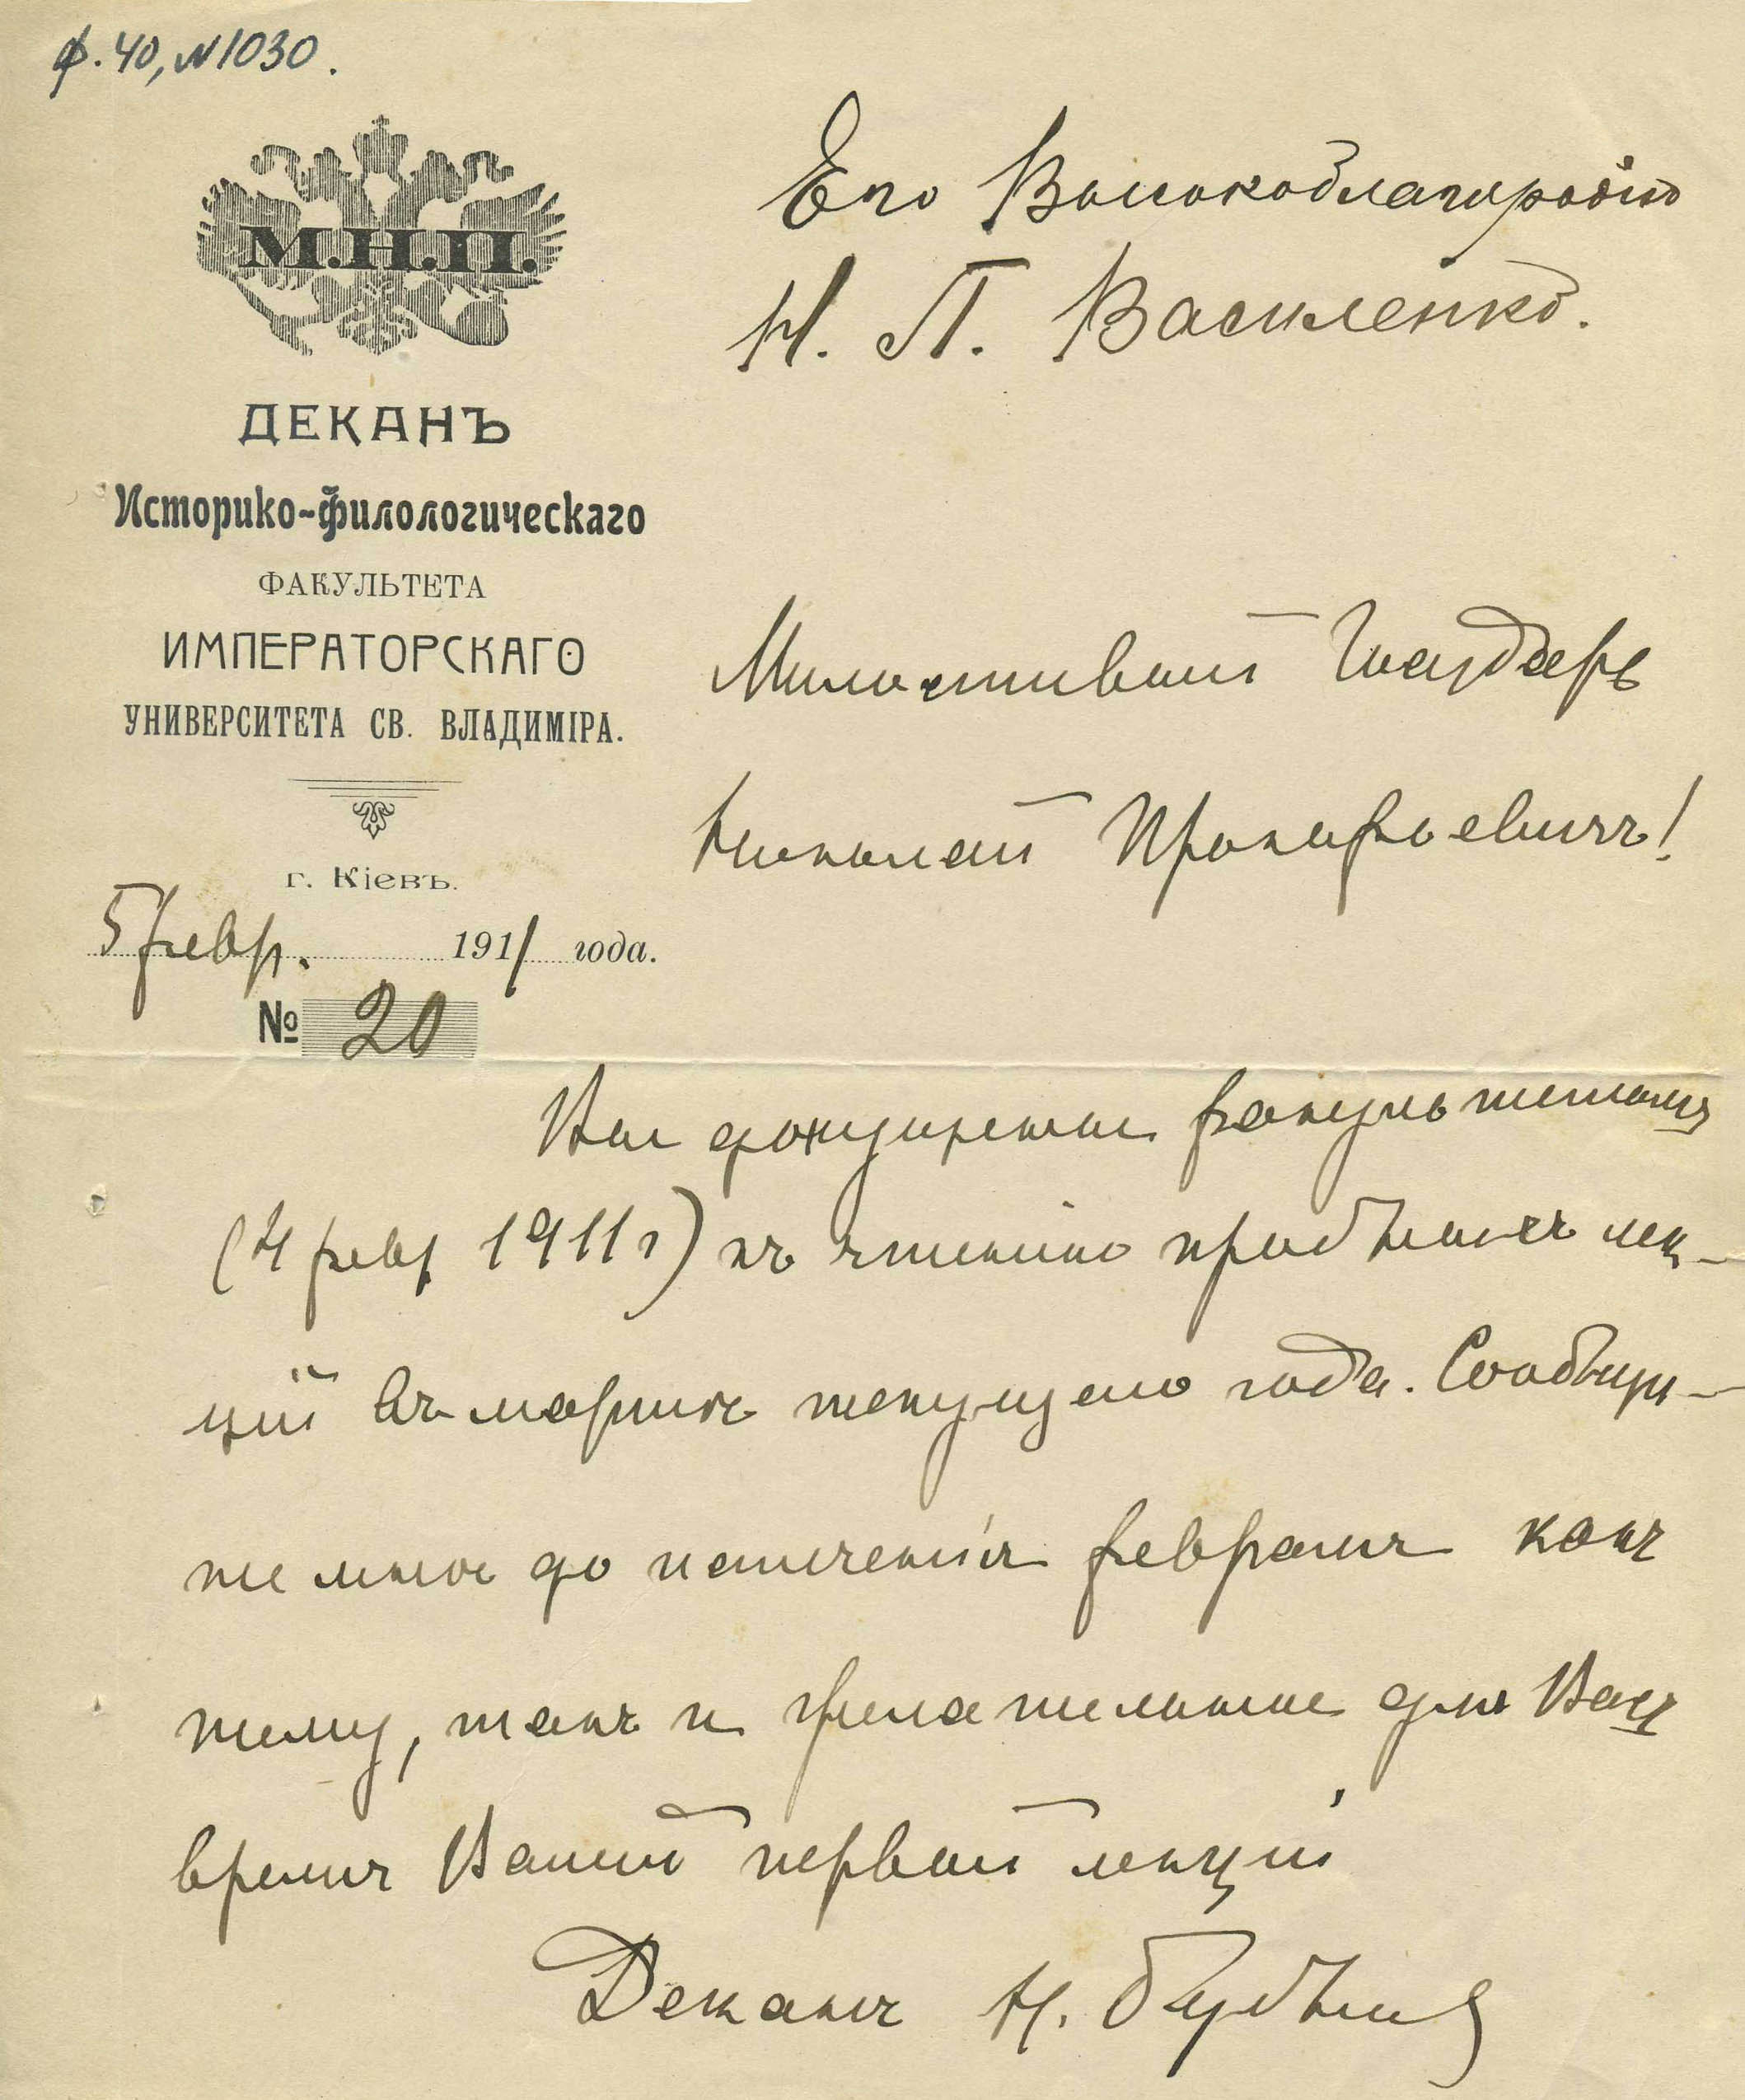 ф. 40, N 1030.
М.Н.П.
ДЕКАНЪ
Историко-филологическаго
ФАКУЛЬТЕТА
ИМПЕРАТОРСКАГО
УНИВЕРСИТЕТА СВ. ВЛАДИМІРА.
г. Кіевъ.
5 февр. 1911 года.
№ 20
Его Высокоблагородію
Н. П. Василенко.
Милостивый Государь
Николай Прокофьевичъ!
Вы допущены факультетомъ
(4 февр 1911 г) къ чтенію пробныхъ лек-
цій въ мартѣ текущаго года. Сообщи-
те мнѣ до истеченія февраля какъ
тему, такъ и желательное для Васъ
время Вашей первой лекціи
Деканъ Н. Бубновъ